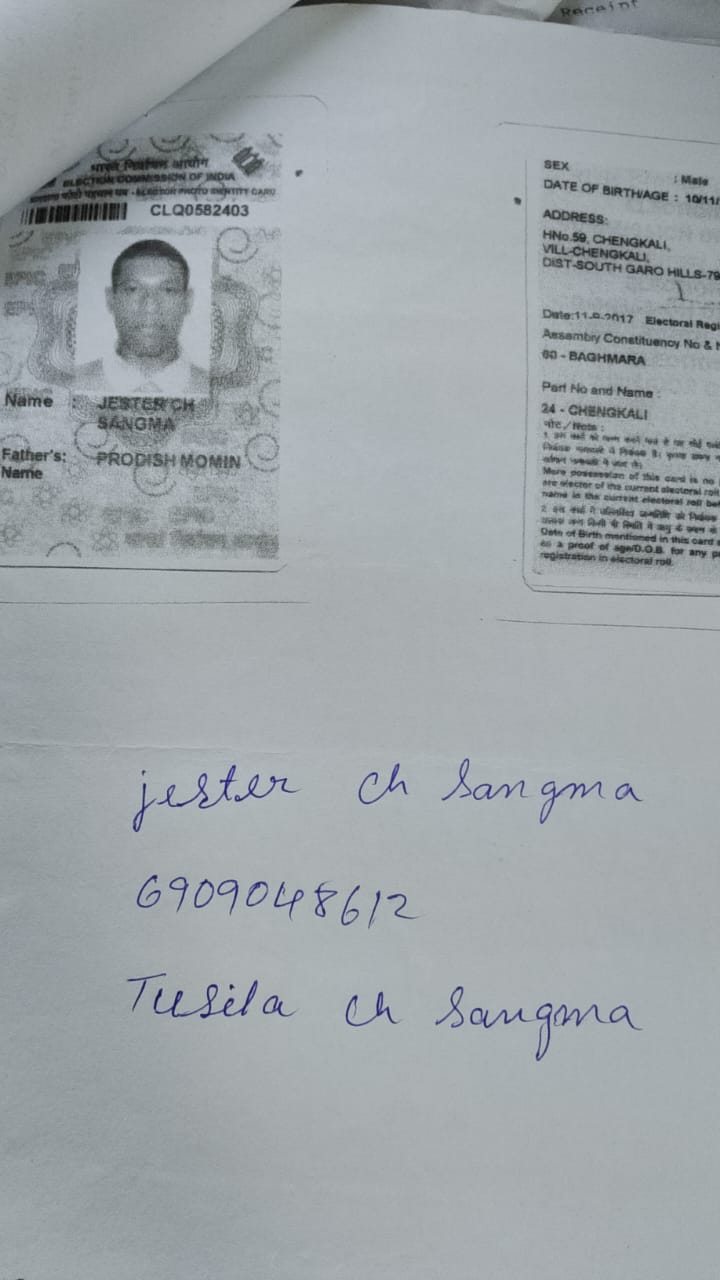 Receipt
भारत निर्वाचन आयोग
ELECTION COMMISSION OF INDIA
ELECTOR PHOTO IDENTITY CARD
CLQ0582403
Name : JESTER CH
SANGMA
Father's: PRODISH MOMIN
Name
SEX : Male
DATE OF BIRTH/AGE : 10/11/
ADDRESS:
HNo.59, CHENGKALI,
VILL-CHENGKALI,
DIST-SOUTH GARO HILLS-79
Date:11-9-2017 Electoral Regi
Assembly Constituency No & N
60 - BAGHMARA
Part No and Name :
24 - CHENGKALI
नोट / Note :
Mere possession of this card is no
are elector of the current electoral roll
name in the current electoral roll be
Date of Birth mentioned in this card
as a proof of age/D.O.B. for any p
registration in electoral roll.
jester ch Sangma
6909048612
Tusila ch Sangma